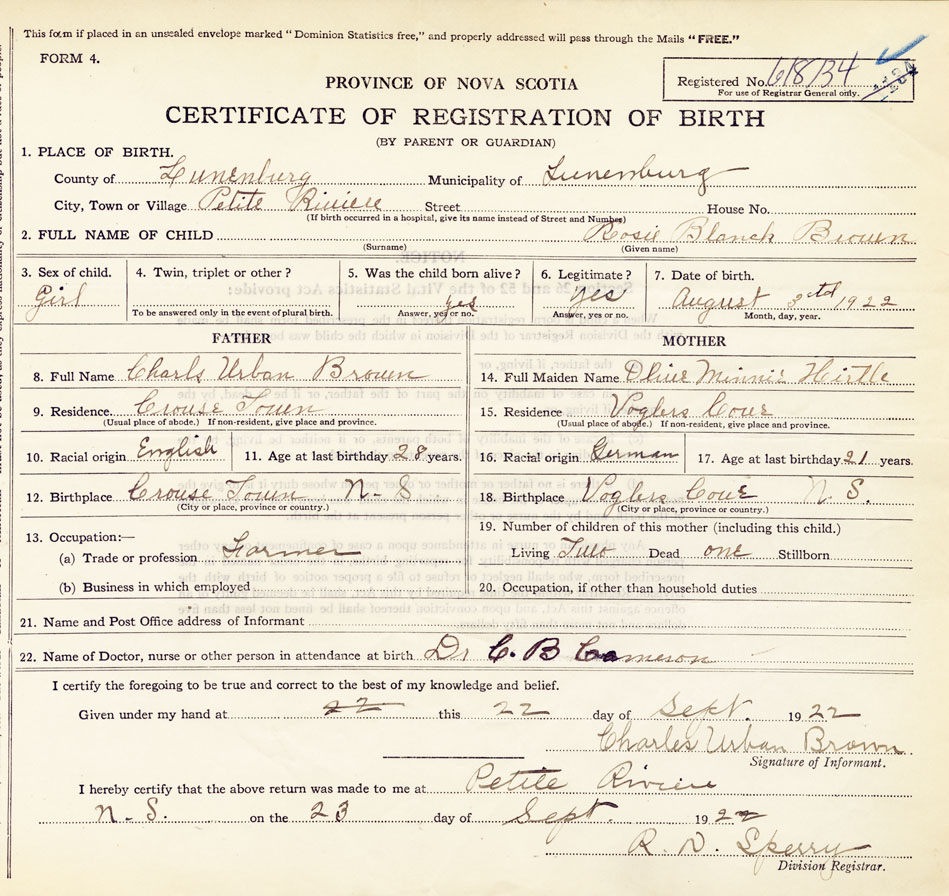 This form if placed in an unsealed envelope marked "Dominion Statistics free," and properly addressed will pass through the Mails "FREE."
FORM 4.
PROVINCE OF NOVA SCOTIA
Registered No. 618134
For use of Registrar General only.
CERTIFICATE OF REGISTRATION OF BIRTH
(BY PARENT OR GUARDIAN)
1. PLACE OF BIRTH.
County of Lunenburg Municipality of Lunenburg
City, Town or Village Petite Riviere Street House No.
(If birth occurred in a hospital, give its name instead of Street and Number)
2. FULL NAME OF CHILD Rosie Blanch Brown
(Surname) (Given name)
3. Sex of child. 4. Twin, triplet or other? 5. Was the child born alive? 6. Legitimate? 7. Date of birth.
Girl yes yes August 3rd 1922
To be answered only in the event of plural birth. Answer, yes or no. Answer, yes or no. Month, day, year.
FATHER MOTHER
8. Full Name Charls Urban Brown 14. Full Maiden Name Olive Minnie Hirtle
9. Residence. Crouse Town 15. Residence Voglers Cove
(Usual place of abode.) If non-resident, give place and province. (Usual place of abode.) If non-resident, give place and province.
10. Racial origin English 11. Age at last birthday 28 years. 16. Racial origin German 17. Age at last birthday 21 years.
12. Birthplace Crouse Town N-S 18. Birthplace Voglers Cove N S.
(City or place, province or country.) (City or place, province or country.)
13. Occupation:— 19. Number of children of this mother (including this child.)
(a) Trade or profession Farmer Living Two Dead one Stillborn
(b) Business in which employed 20. Occupation, if other than household duties
21. Name and Post Office address of Informant
22. Name of Doctor, nurse or other person in attendance at birth Dr C. B Cameson
I certify the foregoing to be true and correct to the best of my knowledge and belief.
Given under my hand at 22 this 22 day of Sept. 1922
Charles Urban Brown
Signature of Informant.
I hereby certify that the above return was made to me at Petite Riviere
N-S. on the 23 day of Sept. 1922
R. D. Sperry
Division Registrar.